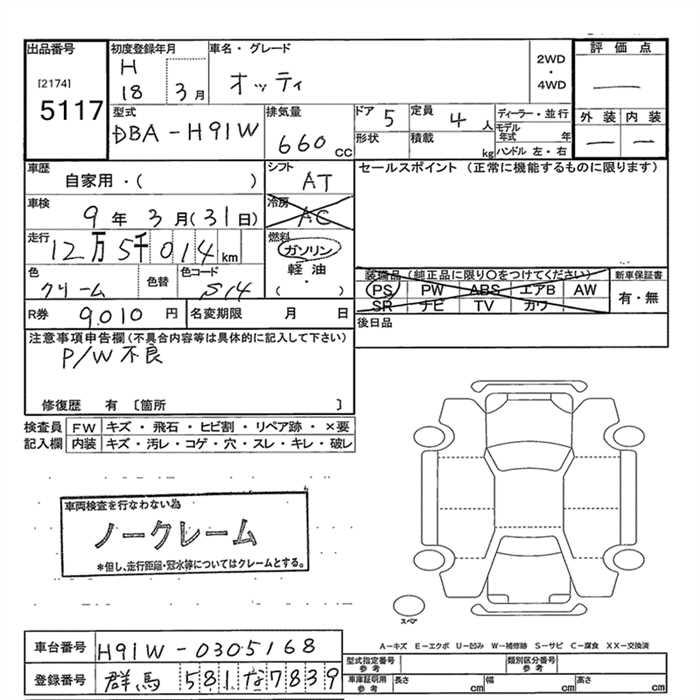 出品番号 初度登録年月 車名・グレード 2WD・4WD 評価点
[2174] H
5117 18 3月 オッティ
型式 排気量 ドア 定員 ディーラー・並行 外装 内装
DBA-H91W 660cc 5 4人 モデル年式 年
形状 積載 kg ハンドル 左・右
車歴 シフト セールスポイント (正常に機能するものに限ります)
自家用・( ) AT
車検 冷房
9年3月(31日) AC
走行 燃料
12万5千014km ガソリン
軽油
・( )
色 色替 色コード 装備品(純正品に限り〇をつけてください) 新車保証書
クリーム S14 PS PW ABS エアB AW 有・無
SR ナビ TV カワ
R券 9010円 名変期限 月 日 後日品
注意事項申告欄(不具合内容等は具体的に記入して下さい)
P/W不良
修復歴 有 〔箇所 〕
検査員 FW キズ・飛石・ヒビ割・リペア跡・×要
記入欄 内装 キズ・汚レ・コゲ・穴・スレ・キレ・破レ
車両検査を行なわない為
ノークレーム
*但し、走行距離・冠水等についてはクレームとする。
スペア
A-キズ E-エクボ U-凹み W-補修跡 S-サビ C-腐食 XX-交換済
車台番号 H91W-0305168 型式指定番号 参考 類別区分番号 参考
登録番号 群馬 581 な 7839 車庫証明用 参考 長さ cm 幅 cm 高さ cm